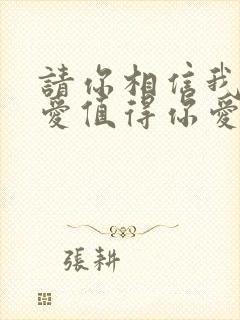 請你相信我
愛值得你愛
張耕